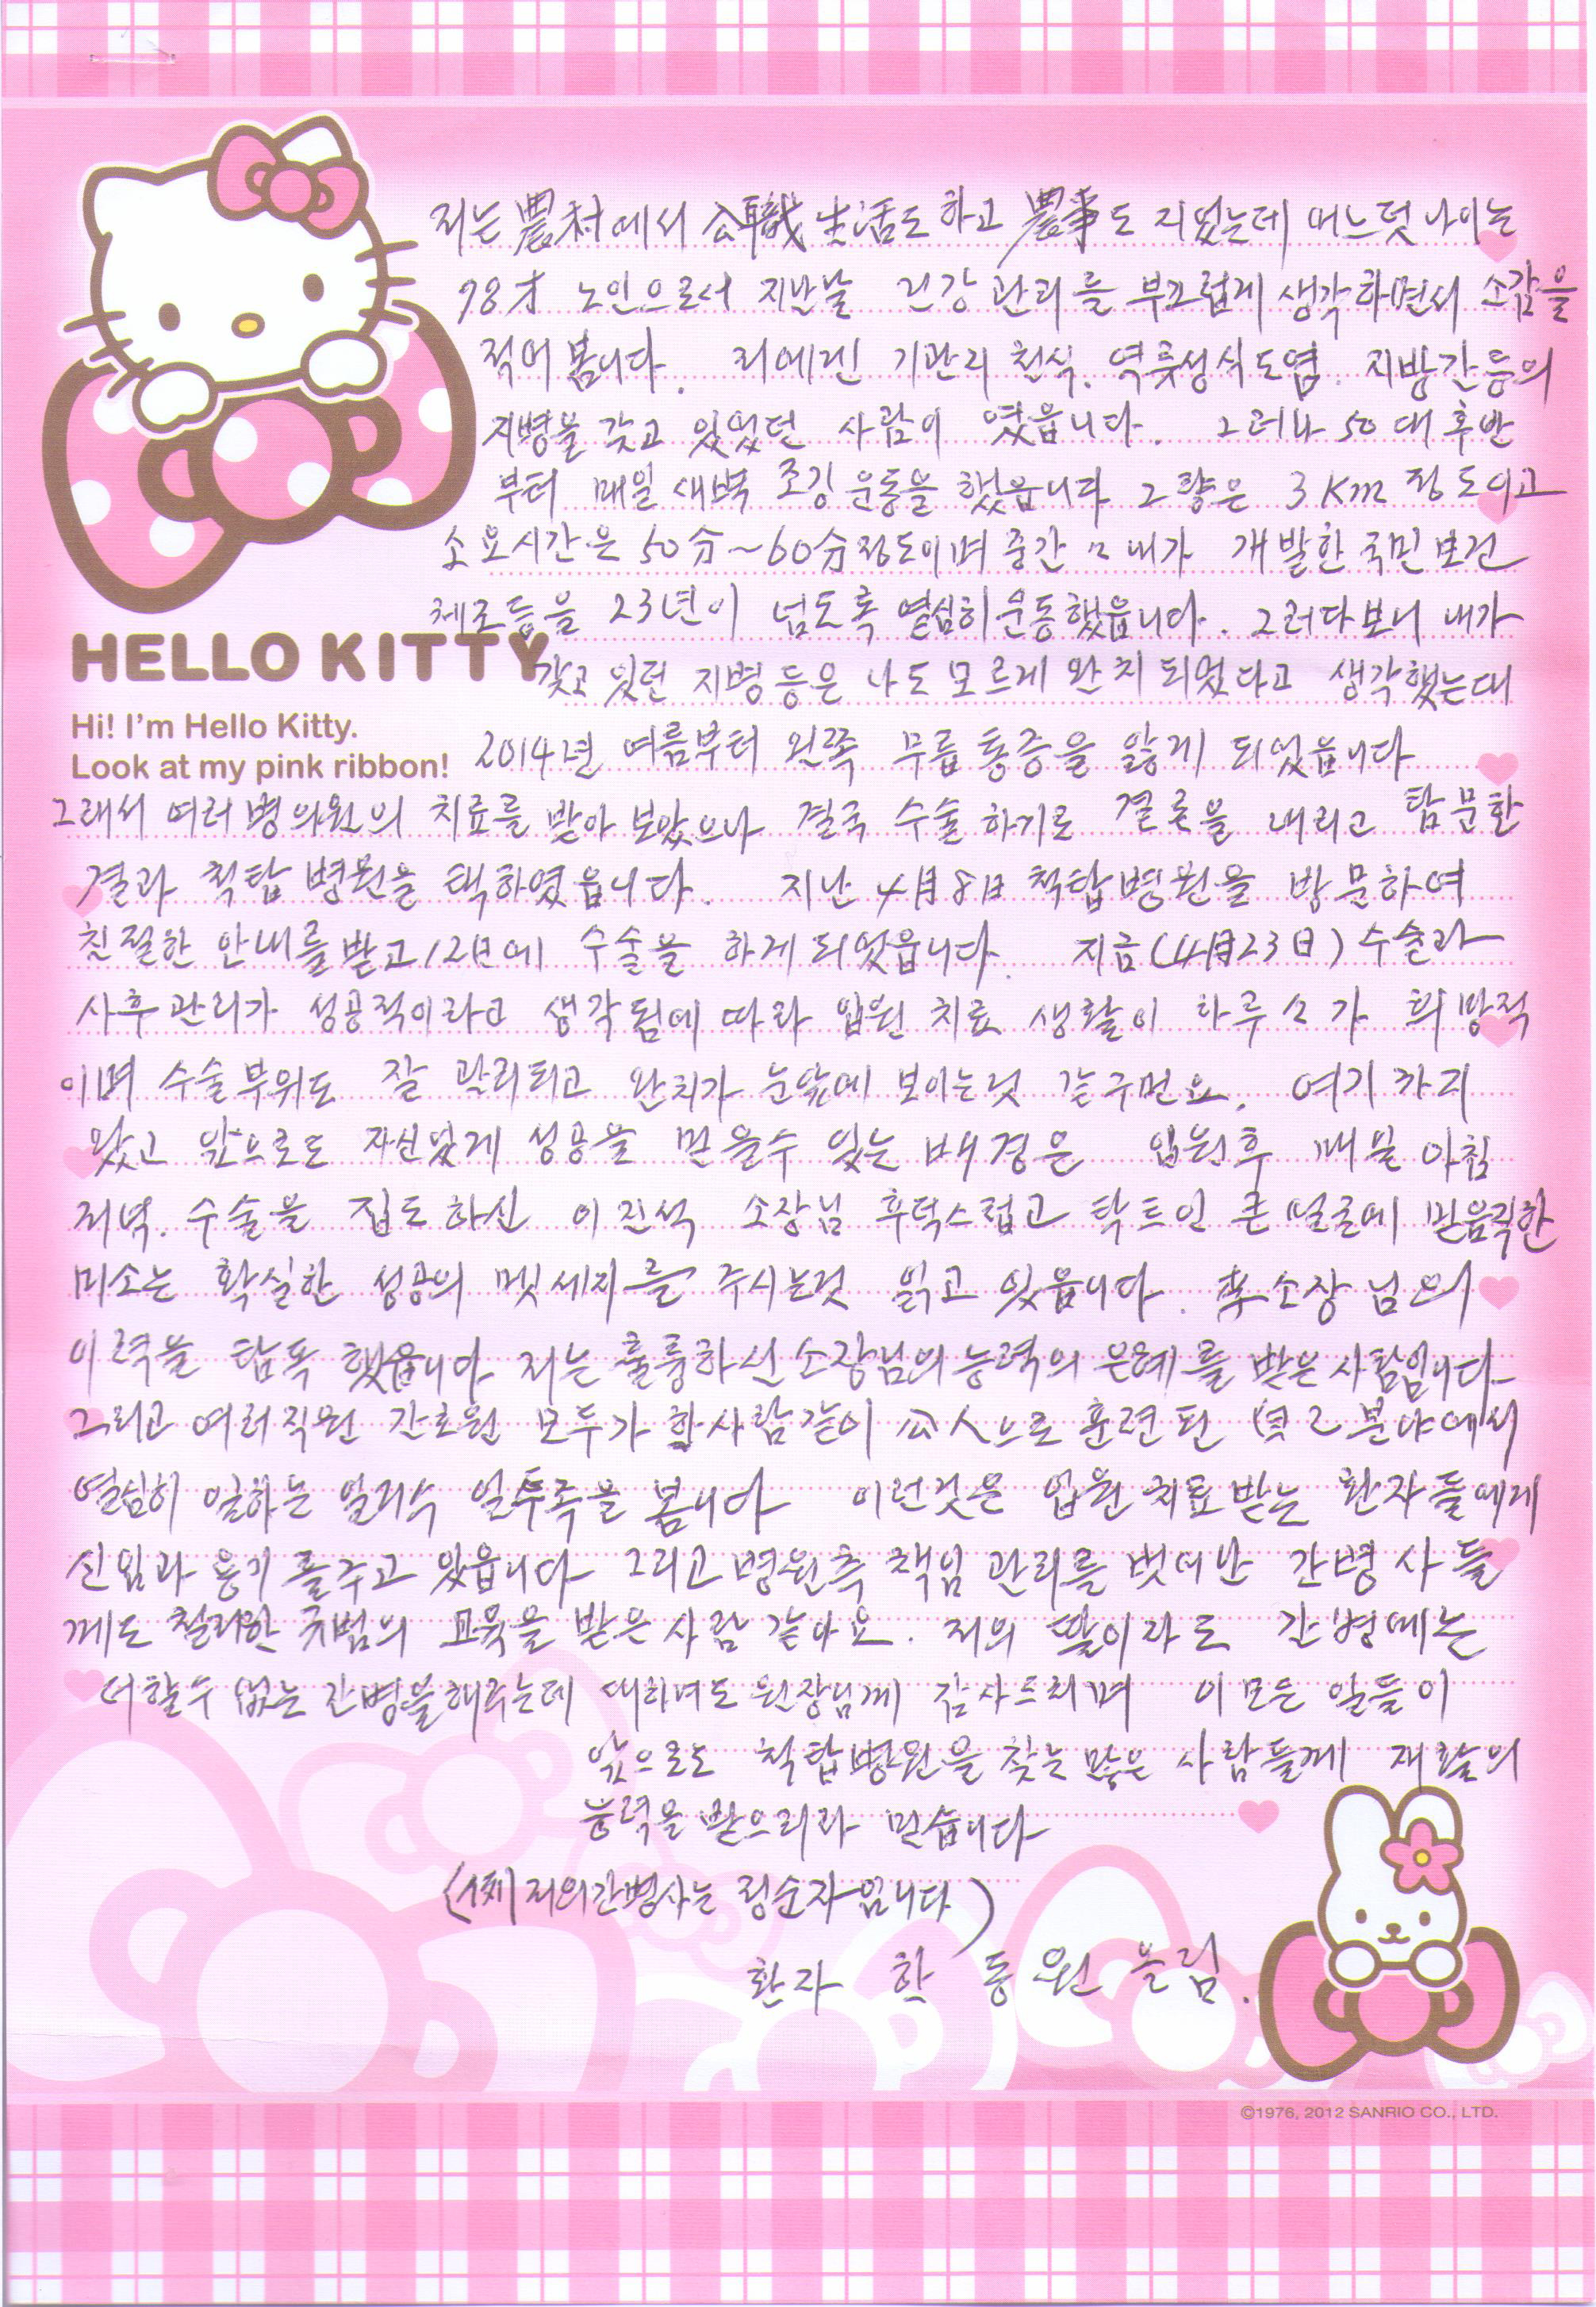 저는 農村에서 公職生活도 하고 農事도 지었는데 어느덧 나이는
78才 노인으로서 지난날 건강관리를 부끄럽게 생각하면서 소감을
적어봅니다. 저에겐 기관지 천식. 역륫성식도염. 지방간등의
지병을 갖고 있었던 사람이 였읍니다. 그러나 50대 후반
부터 매일 새벽 조깅운동을 했읍니다 그 량은 3Km 정도이고
소요시간은 50分~60分정도이며 중간〃 내가 개발한 국민보건
체조등을 23년이 넘도록 열심히 운동했읍니다. 그러다보니 내가
HELLO KITTY
갖고 있던 지병등은 나도 모르게 완치되었다고 생각했는대
Hi! I'm Hello Kitty.
Look at my pink ribbon!
2014년 여름부터 왼쪽 무릅 통증을 앓게 되었읍니다
그래서 여러병의원의 치료를 받아 보았으나 결국 수술하기로 결론을 내리고 탐문한
결과 척탑병원을 택하였읍니다. 지난 4月8日 척탑병원을 방문하여
친절한 안내를받고 12년에 수술을 하게되었읍니다. 지금(4月23日) 수술과
사후관리가 성공적이라고 생각됨에 따라 입원 치료 생활이 하루〃가 희망적
이며 수술부위도 잘 관리되고 완치가 눈앞에 보이는것 같구먼요. 여기까지
왔고 앞으로도 자신있게 성공을 믿을수 있는 배경은 입원후 매일 아침
저녁. 수술을 집도하신 이진석 소장님 후덕스럽고 탁트인 큰 얼굴에 믿음직한
미소는 확실한 성공의 멧세지를 주시는것 읽고 있읍니다. 李소장님의
이력을 탐독했읍니다 저는 훌륭하신 소장님의 능력의 은혜를 받은 사람입니다
그리고 여러직원 간호원 모두가 한사람같이 公人으로 훈련된 분야에서
열심히 일하는 일거수 일투족을 봅니다 이런것은 입원치료받는 환자들에게
신임과 용기를주고 있읍니다 그리고 병원측 책임 관리를 벗어난 간병사들
께도 철저한 규범의 교육을 받은 사람 같아요. 저의 딸이라도 간병에는
더할수 없는 간병을해주는데 대하여도 원장님께 감사드리며 이모든 일들이
앞으로도 척탑병원을 찾는 많은 사람들께 재활의
능력을 받으리라 믿습니다
저의간병사는 정순자입니다)
환자 한동원 올림.
©1976, 2012 SANRIO CO., LTD.